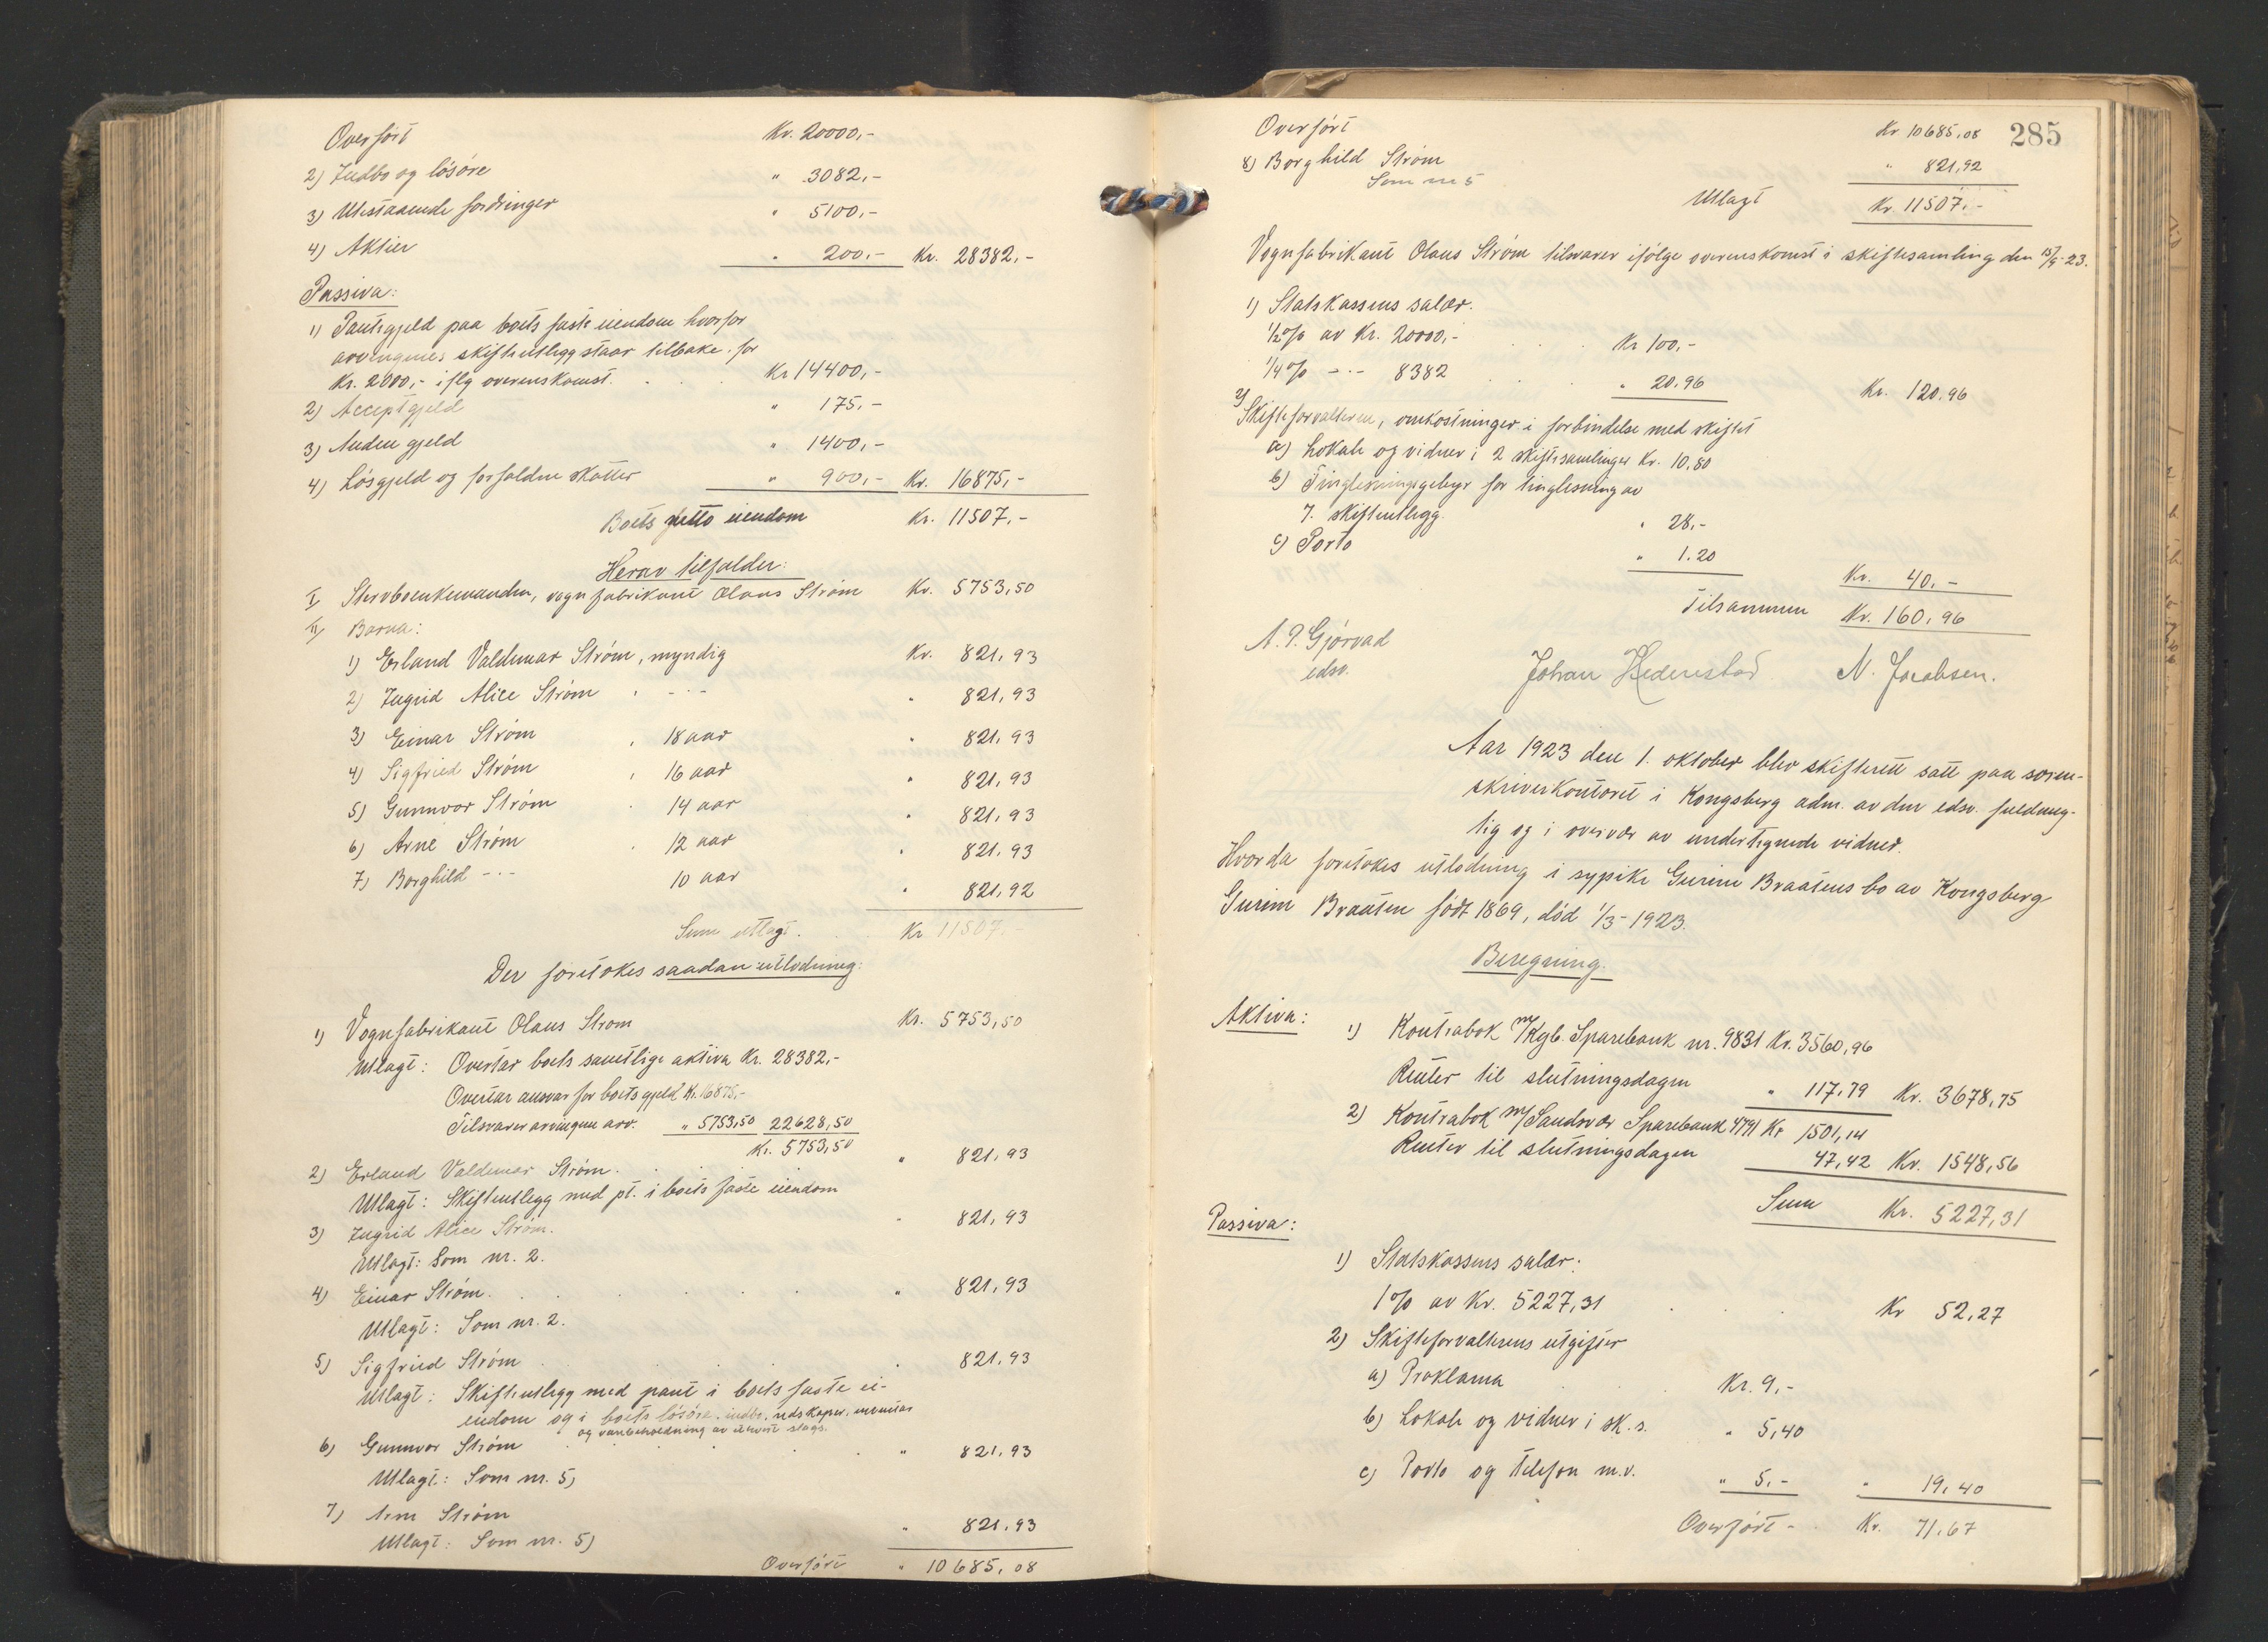 Overført Kr. 20000,-
2) Indbo og løsøre " 3082,-
3) Utestaaende fordringer " 5100,-
4) Aktier " 200,- Kr. 28382,-
Passiva:
1) Pantegjeld paa boets faste eiendom hvorfor
arvingenes skifteutlegg staar tilbake for
Kr. 2000,- iflg overenskomst. Kr 14400,-
2) Acceptgjeld " 175,-
3) Anden gjeld " 1400,-
4) Løsgjeld og forfaldne skatter " 900,- Kr. 16875,-
Boets netto eiendom Kr. 11507,-
Herav tilfalder:
I, Stervboenkemanden, vognfabrikant Olaus Strøm Kr. 5753,50
II, Barna:
1) Erland Valdemar Strøm, myndig Kr. 821,93
2) Ingrid Alice Strøm " -"- " 821,93
3) Einar Strøm , 18 aar " 821,93
4) Sigfried Strøm , 16 aar " 821,93
5) Gunnvor Strøm . 14 aar " 821,93
6) Arne Strøm . 12 aar " 821,93
7) Borghild -"- 10 aar " 821,92
Sum utlagt. Kr 11507,-
Der foretokes saadan utlodning:
1) Vognfabrikant Olaus Strøm Kr. 5753,50
Utlagt: Overtar boets samtlige aktiva Kr. 28382,-
Overtar ansvar for boets gjeld Kr. 16875,-
Tilsvarer arvingene arv. " 5753,50 22628,50
Kr. 5753,50
2) Erland Valdemar Strøm. " 821,93
Utlagt: Skifteutlegg med pt. i boets faste eiendom
3) Ingrid Alice Strøm. " 821,93
Utlagt: Som nr. 2.
4) Einar Strøm. " 821,93
Utlagt: Som nr. 2.
5) Sigfried Strøm . " 821,93
Utlagt: Skifteutlegg med pant i boets faste ei-
endom og i boets løsøre, indbo, redskaper, inventar
og varebeholdning av ethvert slags.
6) Gunnvor Strøm " 821,93
Utlagt: Som nr. 5)
7) Arne Strøm " 821,93
Utlagt: Som nr. 5)
Overført " 10685,08
285
Overført Kr 10685,08
8) Borghild Strøm " 821,92
Som nr 5
Utlagt Kr. 11507,-
Vognfabrikant Olaus Strøm tilsvarer ifølge overenskomst i skiftesamling den 15/9-23.
1) Statskassens salær.
1/2% av Kr. 20000,- Kr 100,-
1/4% -"- 8382 " 20.96 Kr. 120.96
2) Skifteforvalteren, omkostninger i forbindelse med skiftet
a) Lokale og vidner i 2 skiftesamlinger Kr. 10,80
b) Tinglesningsgebyr for tinglesning av
7. skifteutlegg. " 28.-
c) Porto " 1.20
Kr. 40.-
Tilsammen Kr. 160,96
A. P. Gjørvad
edsv.
Johan Hedenstad N. Jacobsen.
Aar 1923 den 1. oktober blev skifterett satt paa soren-
skriverkontoret i Kongsberg adm. av den edsv. fuldmeg-
tig og i overvær av undertegnede vidner.
Hvorda foretokes utlodning i sypike Gurine Braatens bo av Kongsberg
Gurine Braaten født 1869, død 1/3-1923.
Beregning.
Aktiva:
1) Kontrabok m/Kgb. Sparebank nr. 9831 Kr. 3560,96
Renter til slutningsdagen " 117,79 Kr. 3678,75
2) Kontrabok m/Sandsvær Sparebank 4791 Kr 1501,14
Renter til slutningsdagen 47,42 Kr. 1548,56
Sum Kr. 5227,31
Passiva:
1) Statskassens salær:
1% av Kr. 5227,31 Kr 52,27
2) Skifteforvalterens utgifter
a) Proklama Kr. 9,-
b) Lokale og vidner i sk. s. " 5,40
c) Porto og telefon m.v. " 5.- " 19,40
Overført - Kr. 71,67